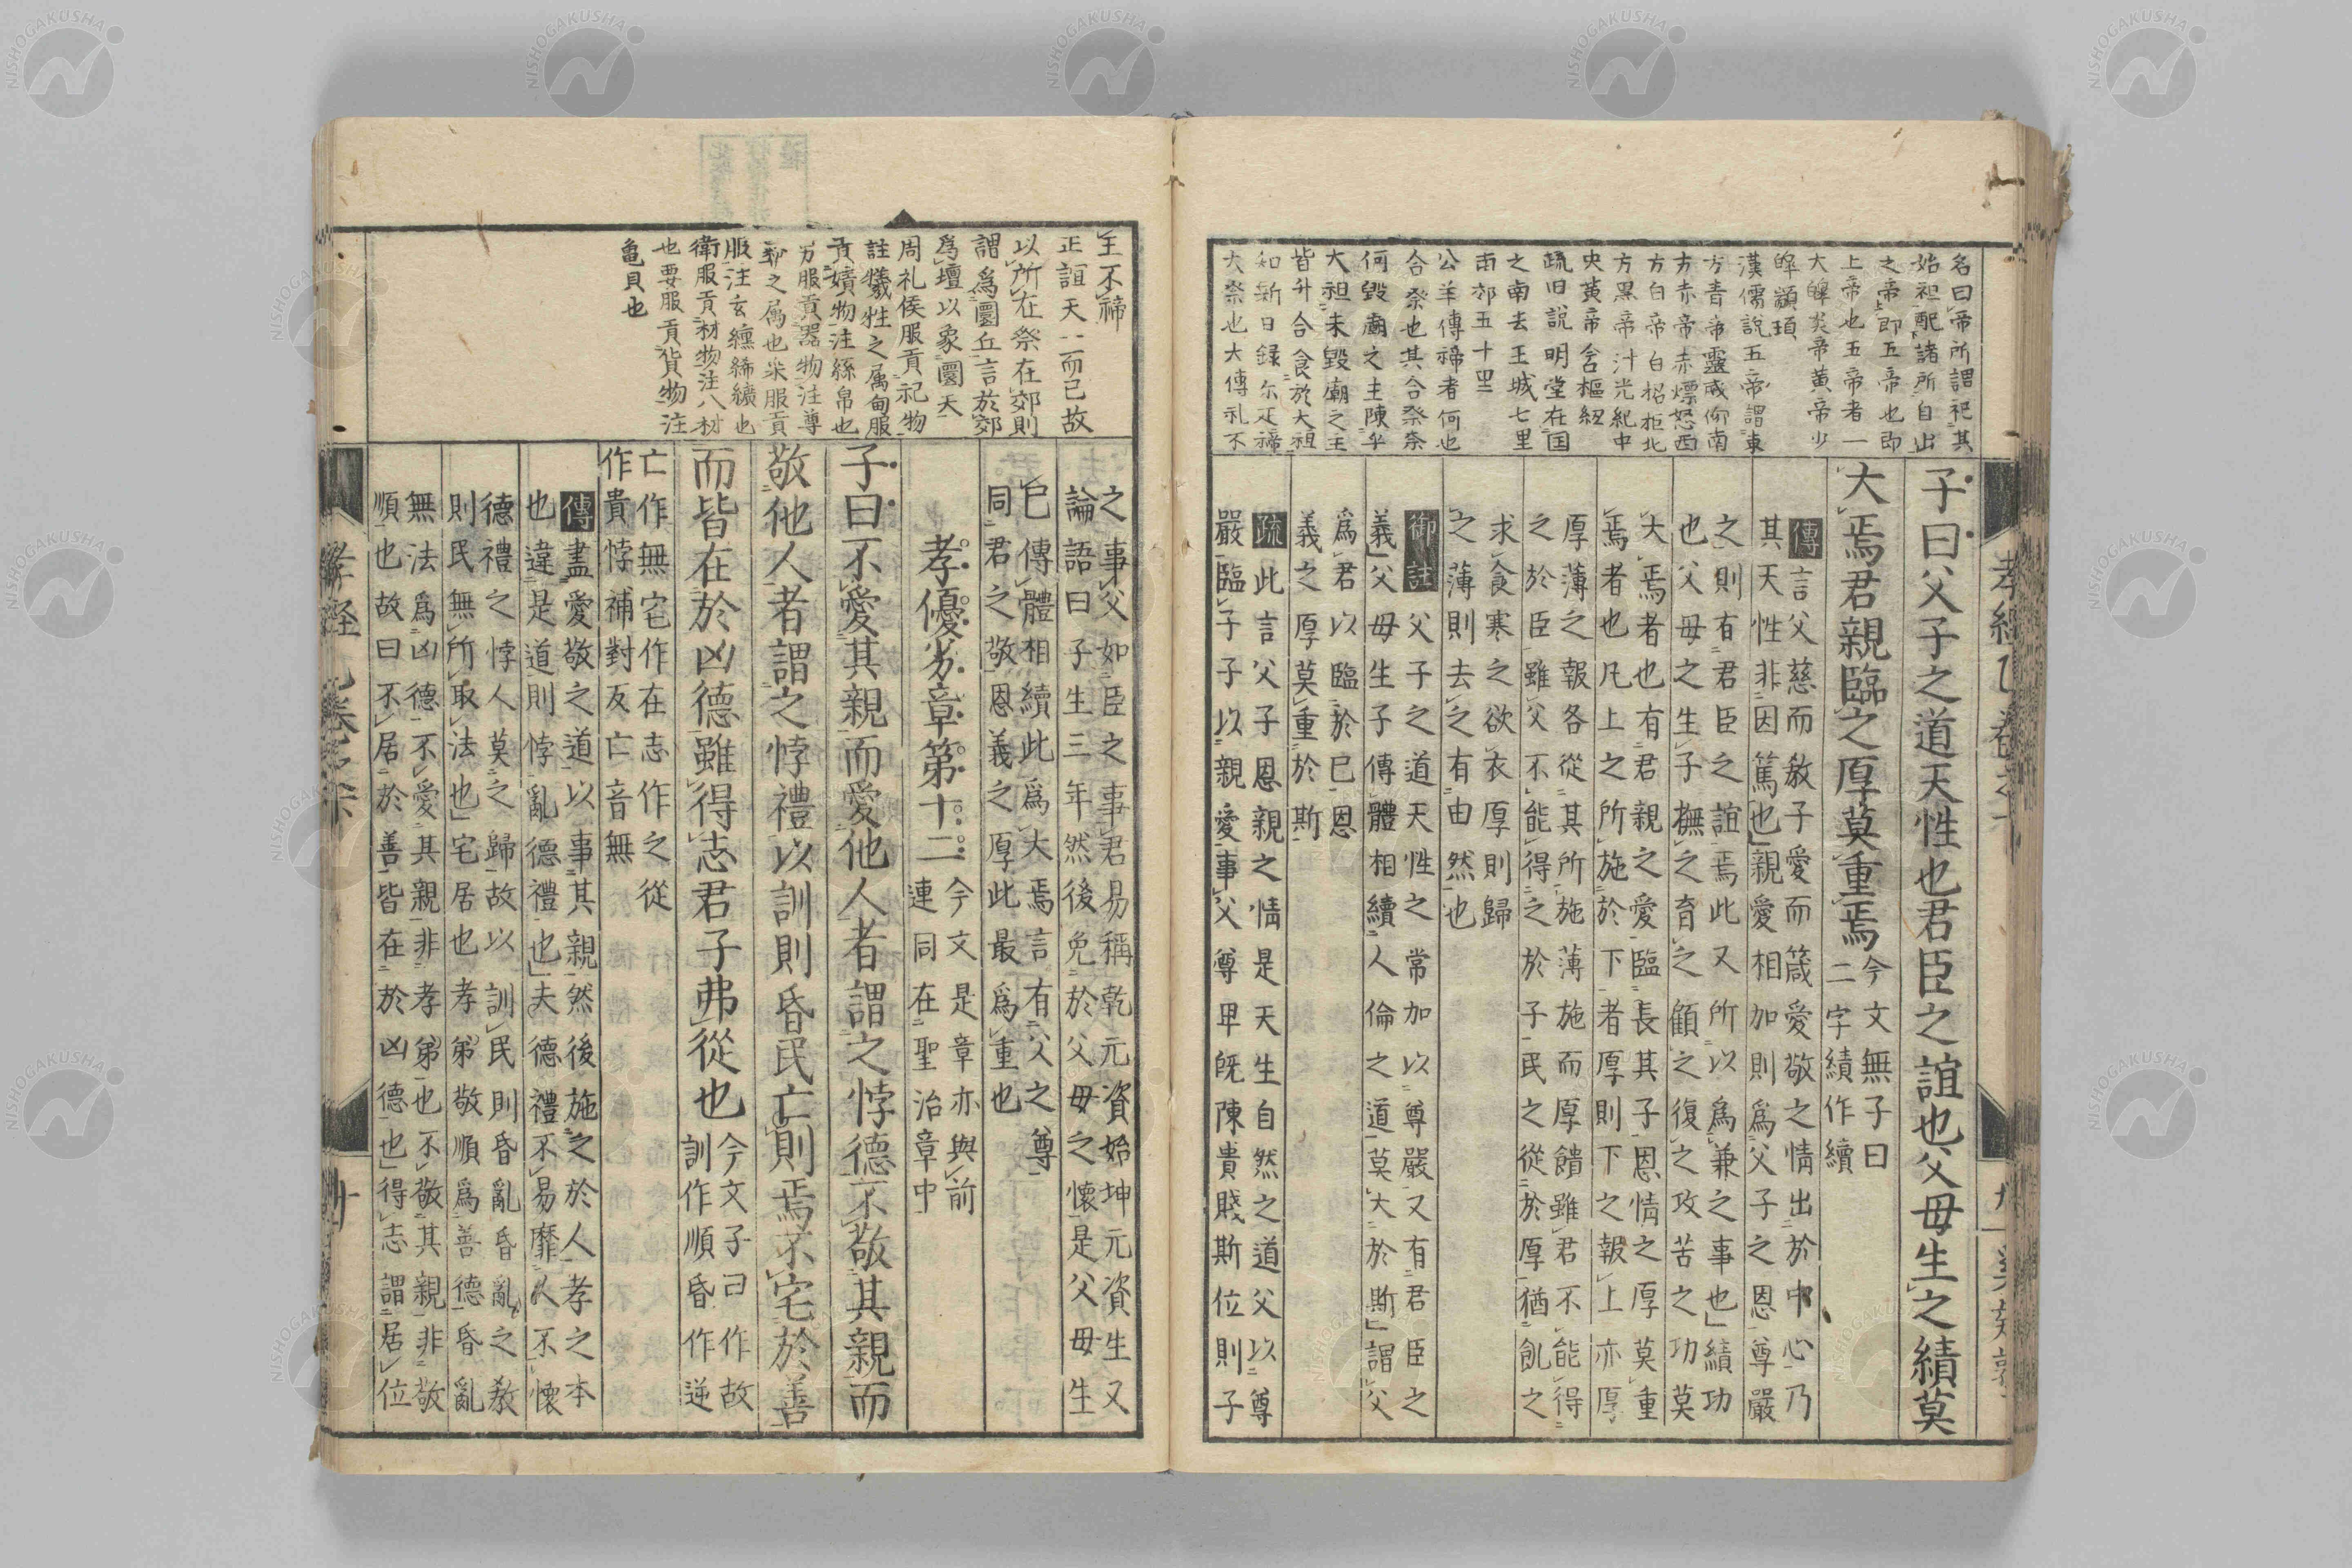 名曰帝所謂祀其
始祖配諸所自出
之帝即五帝也即
上帝也五帝者一
大皥炎帝黄帝少
皥顓頊
漢儒說五帝謂東
方青帝靈威仰南
方赤帝赤熛怒西
方白帝白招拒北
方黒帝汁光紀中
央黄帝含樞紐
疏旧説明堂在国
之南去王城七里
公羊傳禘者何也
合祭也其合祭奈
何毀廟之主陳乎
大祖未毀廟之主
皆升合食於大祖
大祭也大傳礼不
子曰父子之道天性也君臣之誼也父母生之績莫
大焉君親臨之厚莫重焉
今文無子曰
二字績作續
傳言父慈而敎子愛而箴愛敬之情出於中心乃
其天性非因篤也親愛相加則爲父子之恩尊嚴
之則有君臣之誼焉此又所以爲兼之事也績功
也父母之生子橅之育之顧之復之攻苦之功莫
大焉者也有君親之愛臨長其子恩情之厚莫重
焉者也凡上之所施於下者厚則下之報上亦厚
厚薄之報各從其所施薄施而厚饋雖君不能得
之於臣雖父不能得之於子民之從於厚猶飢之
求食寒之欲衣厚則歸
之薄則去之有由然也
御註父子之道天性之常加以尊嚴又有君臣之
義父母生子傳體相續人倫之道莫大於斯謂父
爲君以臨於已恩
義之厚莫重於斯
疏此言父子恩親之情是天生自然之道父以尊
嚴臨子子以親愛事父尊卑既陳貴賤斯位則子
王不禘
正誼天一而已故
以所在祭在郊則
謂爲圜丘言於郊
爲壇以象圜天
周礼侯服貢祀物
註犧牲之属甸服
貢嬪物注絲帛也
男服貢器物注尊
彝之属也采服貢
服注玄纁絺纊也
衛服貢材物注八材
也要服貢貨物注
亀貝也
之事父如臣之事君易稱乾元資始坤元資生又
論語曰子生三年然後免於父母之懷是父母生
已傳體相續此爲大焉言有父之尊
同君之敬恩義之厚此最爲重也
孝優劣章第十二
今文是章亦與前
連同在聖治章中
子曰不愛其親而愛他人者謂之悖德不敬其親而
敬他人者謂之悖禮以訓則昏民亡則焉不宅於善
而皆在於凶德雖得志君子弗從也
今文子曰作故
訓作順昏作逆
亡作無宅作在志作之從
作貴悖補對反亡音無
傳盡愛敬之道以事其親然後施之於人孝之本
也違是道則悖亂德禮也夫德禮不易靡人不懷
德禮之悖人莫之歸故以訓民則昏亂昏亂之敎
則民無所取法也宅居也孝弟敬順爲善德昏亂
無法爲凶德不愛其親非孝弟也不敬其親非敬
順也故曰不居於善皆在於凶德也得志謂居位
NISHOGAKUSHA